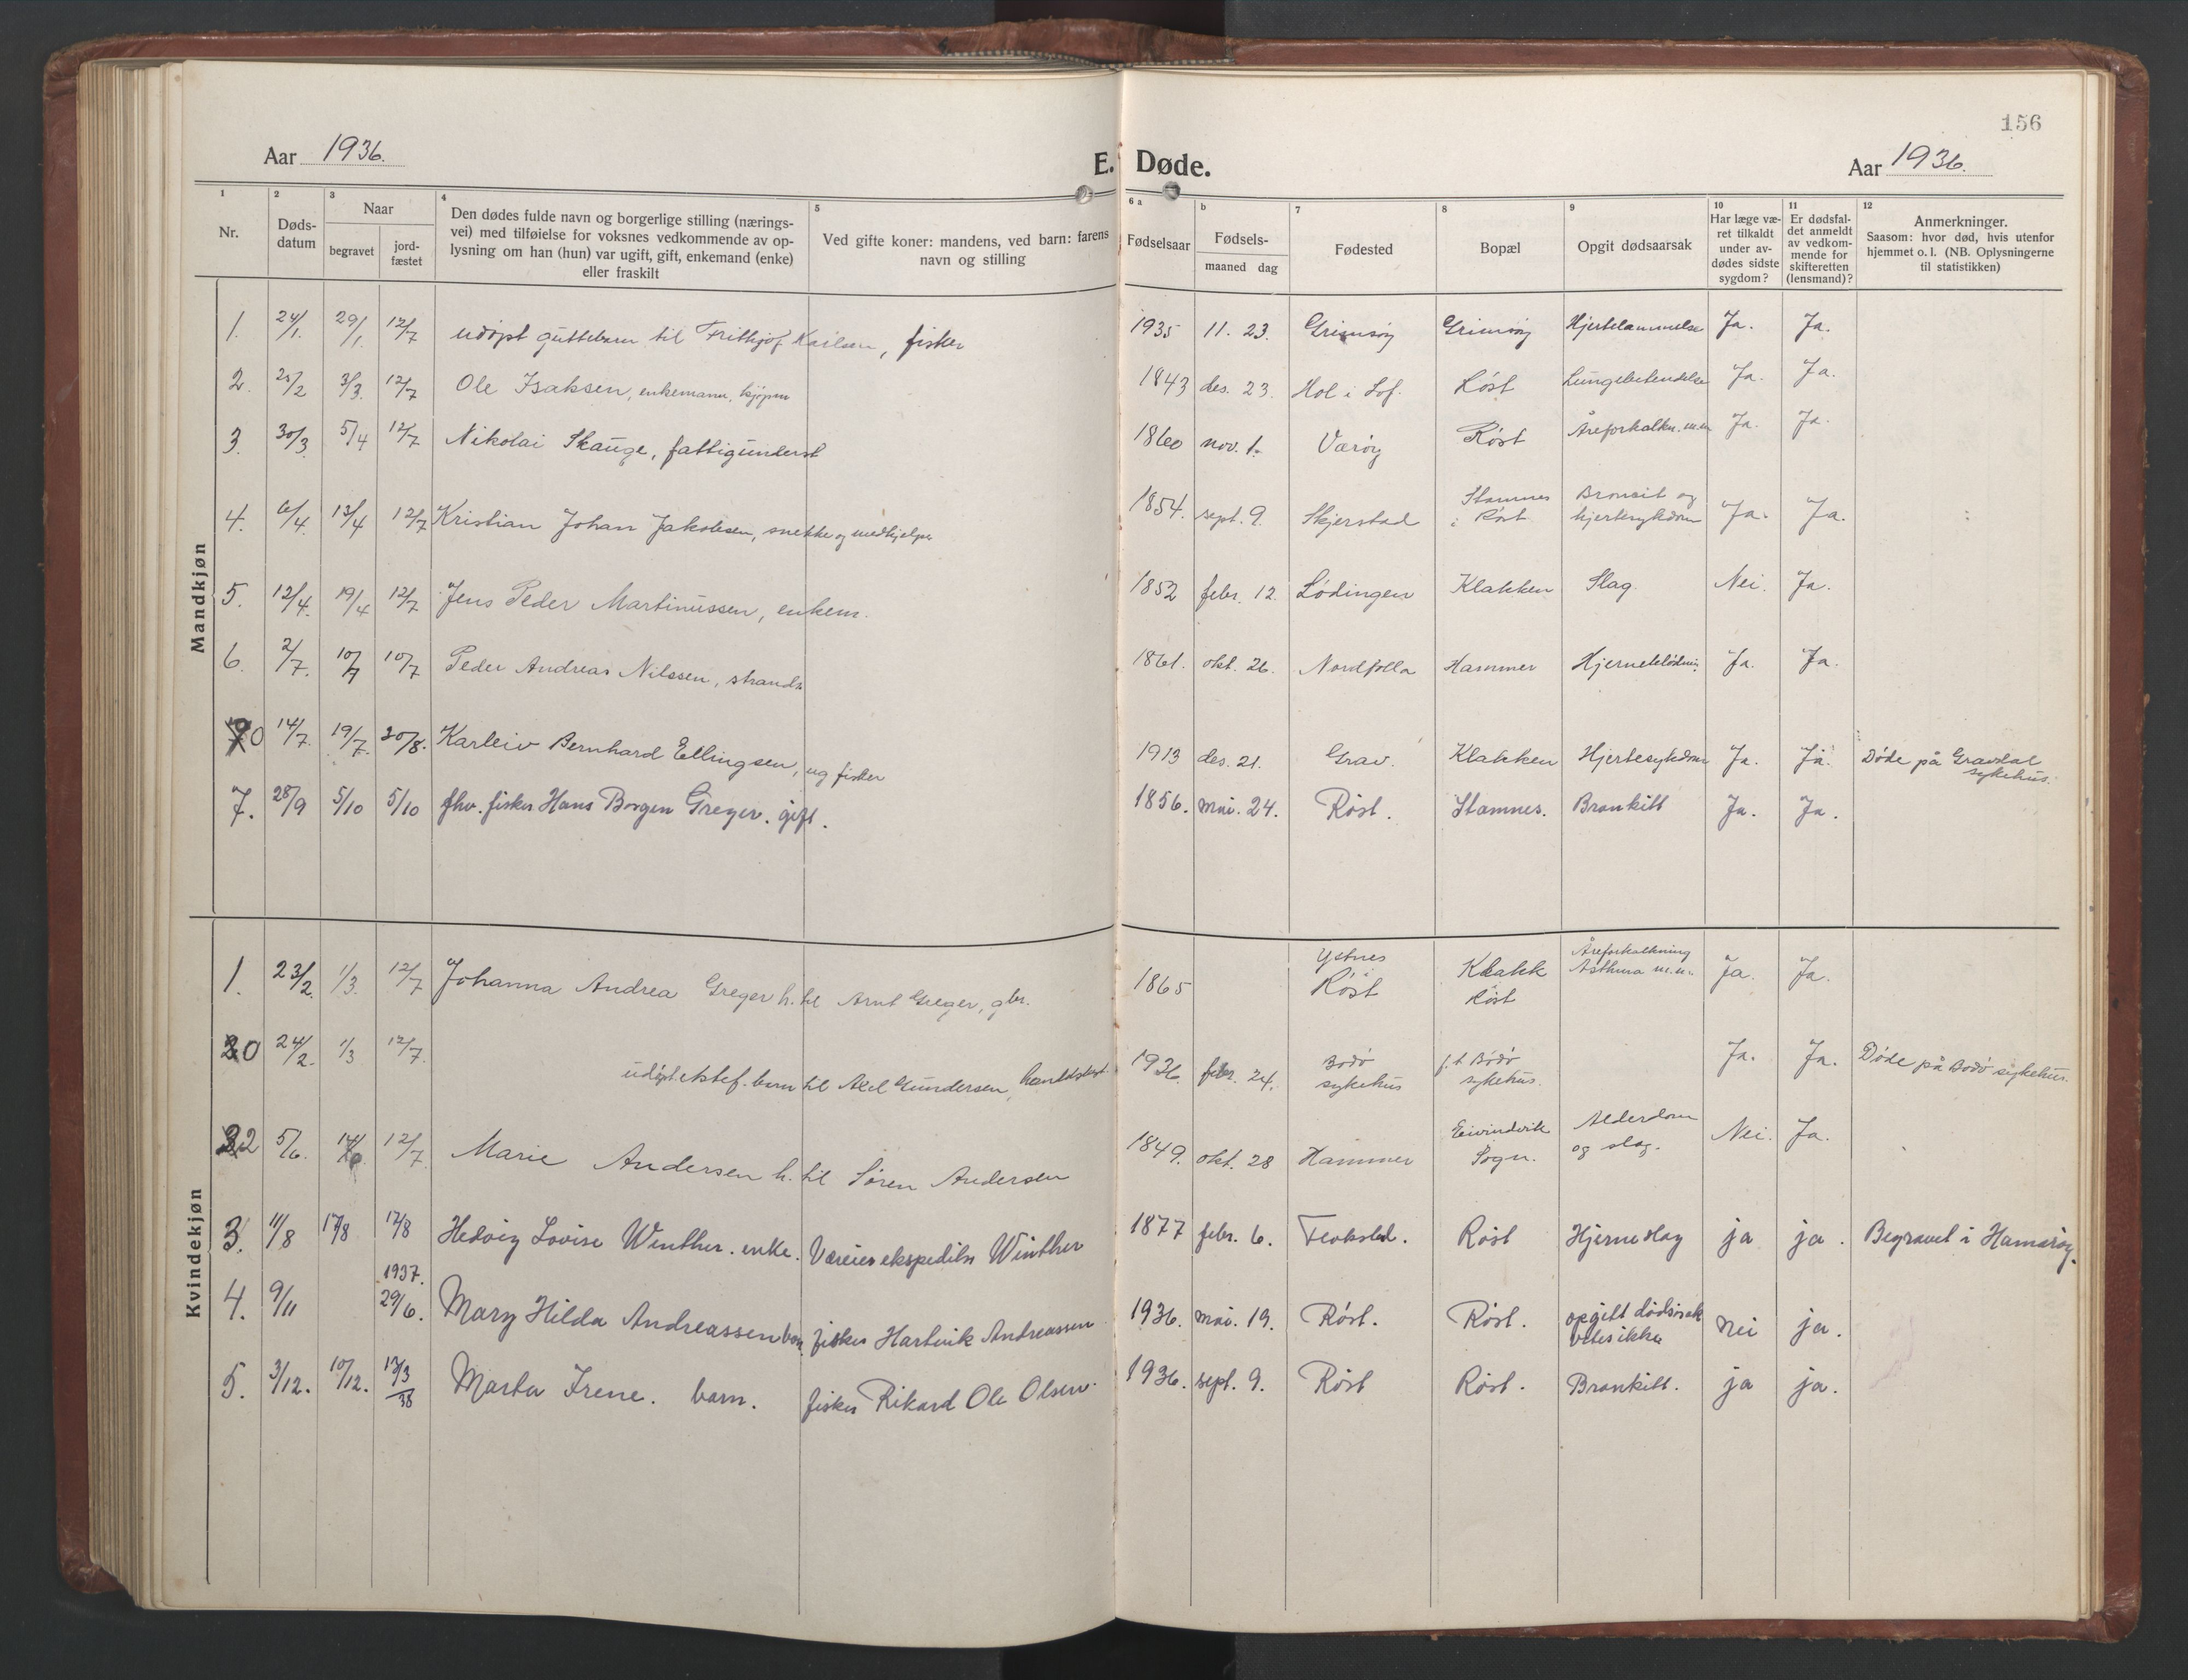 156
Aar 1936.
E. Døde.
Aar 1936.
1 2 3 4 5 6 a b 7 8 9 10 11 12
Nr.
Døds-
datum
Naar
begravet
jord-
fæstet
Den dødes fulde navn og borgerlige stilling (nærings-
vei) med tilføielse for voksnes vedkommende av op-
lysning om han (hun) var ugift, gift, enkemand (enke)
eller fraskilt
Ved gifte koner: mandens, ved barn: farens
navn og stilling
Fødselsaar
Fødsels-
maaned dag
Fødested
Bopæl
Opgit dødsaarsak
Har læge væ-
ret tilkaldt
under av-
dødes sidste
sygdom?
Er dødsfal-
det anmeldt
av vedkom-
mende for
skifteretten
(lensmand)?
Anmerkninger.
Saasom: hvor død, hvis utenfor
hjemmet o. l. (NB. Oplysningerne
til statistikken)
Mandkjøn
1. 24/1. 29/1. 12/7 udøpt guttebarn til Frithjof Karlsen, fisker 1935 11. 23. Grimsøy Grimsøy Hjertelammelse Ja. Ja.
2. 25/2 3/3. 12/7 Ole Isaksen, enkemann, 1843 des. 23. Hol i Lof. Røst Lungebetendelse Ja. Ja.
3. 30/3. 5/4 12/7 Nikolai Skauge, fattigunderst 1860 nov. 1. Værøy Røst Åreforkalkn. m.m Ja. Ja.
4. 6/4. 13/4 12/7 Kristian Johan Jakobsen, snekke og medhjelper 1854. sept. 9. Skjerstad Stamnes i Røst Bronkit og hjertesykdom Ja. Ja.
5. 12/4. 19/4 12/7 Jens Peder Martinussen, enkem. 1852 febr. 12. Lødingen Klakken Slag. Nei. Ja.
6. 2/7. 10/7 10/7 Peder Andreas Nilssen, strands 1861. okt. 26. Nordfolla Hammer Hjerneblødnin. Ja. Ja.
0 14/7. 19/7. 30/8. Karleiv Bernhard Ellingsen, ug fisker 1913 des. 21. Grav. Klakken Hjertesykdom Ja. Ja. Døde på Gravdal
sykehus.
7. 28/9 5/10 5/10 fhv. fisker Hans Borgen Greger. gift. 1856. mai. 24. Røst. Stamnes. Bronkitt Ja. Ja.
Kvindekjøn
1. 23/2. 1/3. 12/7 Johanna Andrea Greger h. til Arnt Greger, gbr. 1865 Ystnes Røst Klakk Røst Åreforkalkning Asthma m.m. Ja. Ja.
0 24/2. 1/3 12/7. udøpt ektef. barn til Axel Gundersen, 1936. febr. 24. Bodø sykehus f.t. Bodø sykehus. Ja. Ja. Døde på Bodø sykehus.
2 5/6. 14/6. 12/7. Marie Andersen h. til Søren Andersen 1849. okt. 28 Hammer Eivindvik Sogn. Alderdom og slag. Nei. Ja.
3. 11/8 17/8 17/8 Hedvig Lovise Winther. enke. Væreier ekspeditør Winther 1877 febr. 6. Røst Hjerneslag ja ja. Begravet i Hamarøy.
1937.
4. 9/11 29/6. Mary Hilda Andreassen barn fisker Hartvik Andreassen 1936. mai. 19. Røst. Røst. opgitt dødsårsak vites ikke nei ja.
5. 3/12. 10/12. 13/3 38 Marta Irene. barn. fisker Rikard Ole Olsen. 1936. sept. 9. Røst Røst. Bronkitt. ja ja.